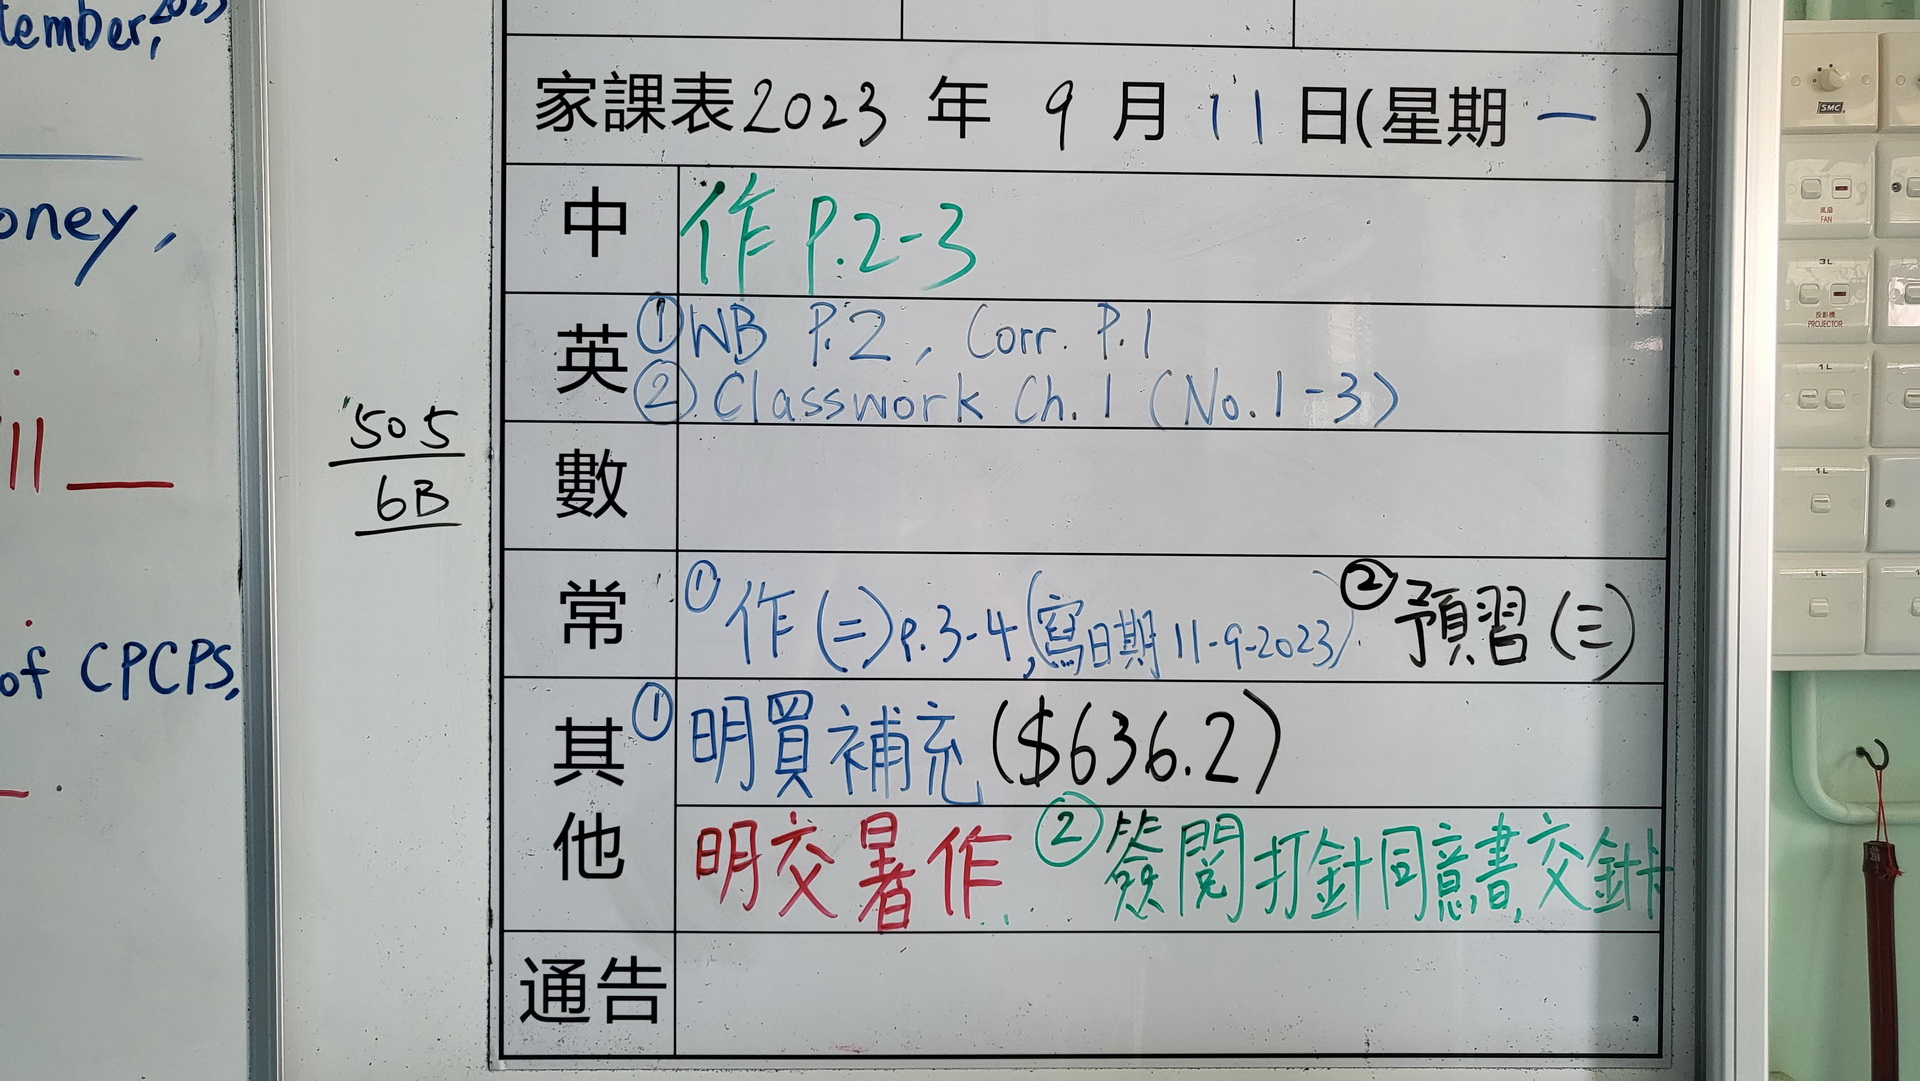 tember, 2023
oney,
11
of CPCPS,
505
6B
家課表2023 年 9 月 11 日(星期 一 )
中 作 P.2-3
英 ①WB P.2, Corr. P.1
② Classwork Ch.1 (No.1-3)
數
常 ①作(二)P.3-4,(寫日期 11-9-2023) ②預習(三)
其他 ①明買補充($636.2)
明交暑作 ②簽閱打針同意書,交針卡
通告
SMC
風扇
FAN
3L
投影機
PROJECTOR
1L
1L
1L
1L